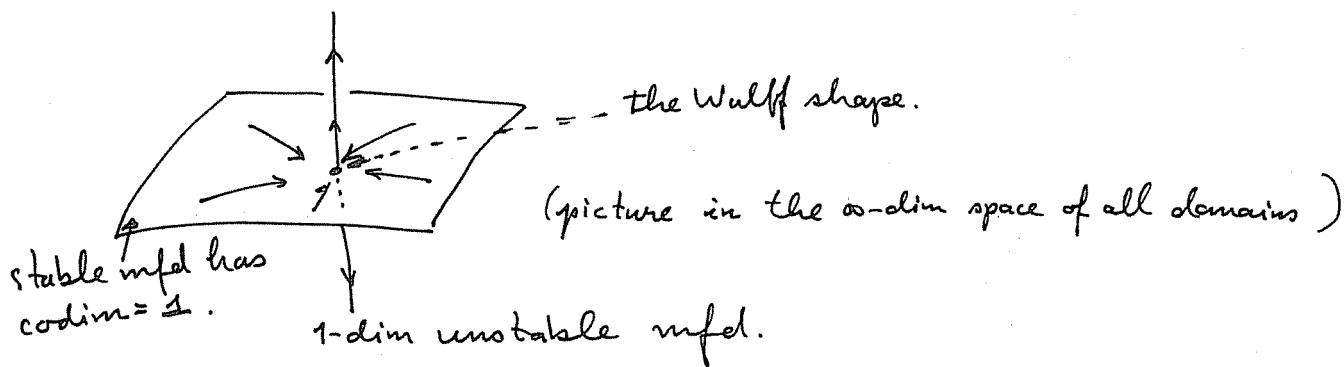 the Wulff shape.
(picture in the ∞-dim space of all domains)
stable mfd has
codim = 1.
1-dim unstable mfd.